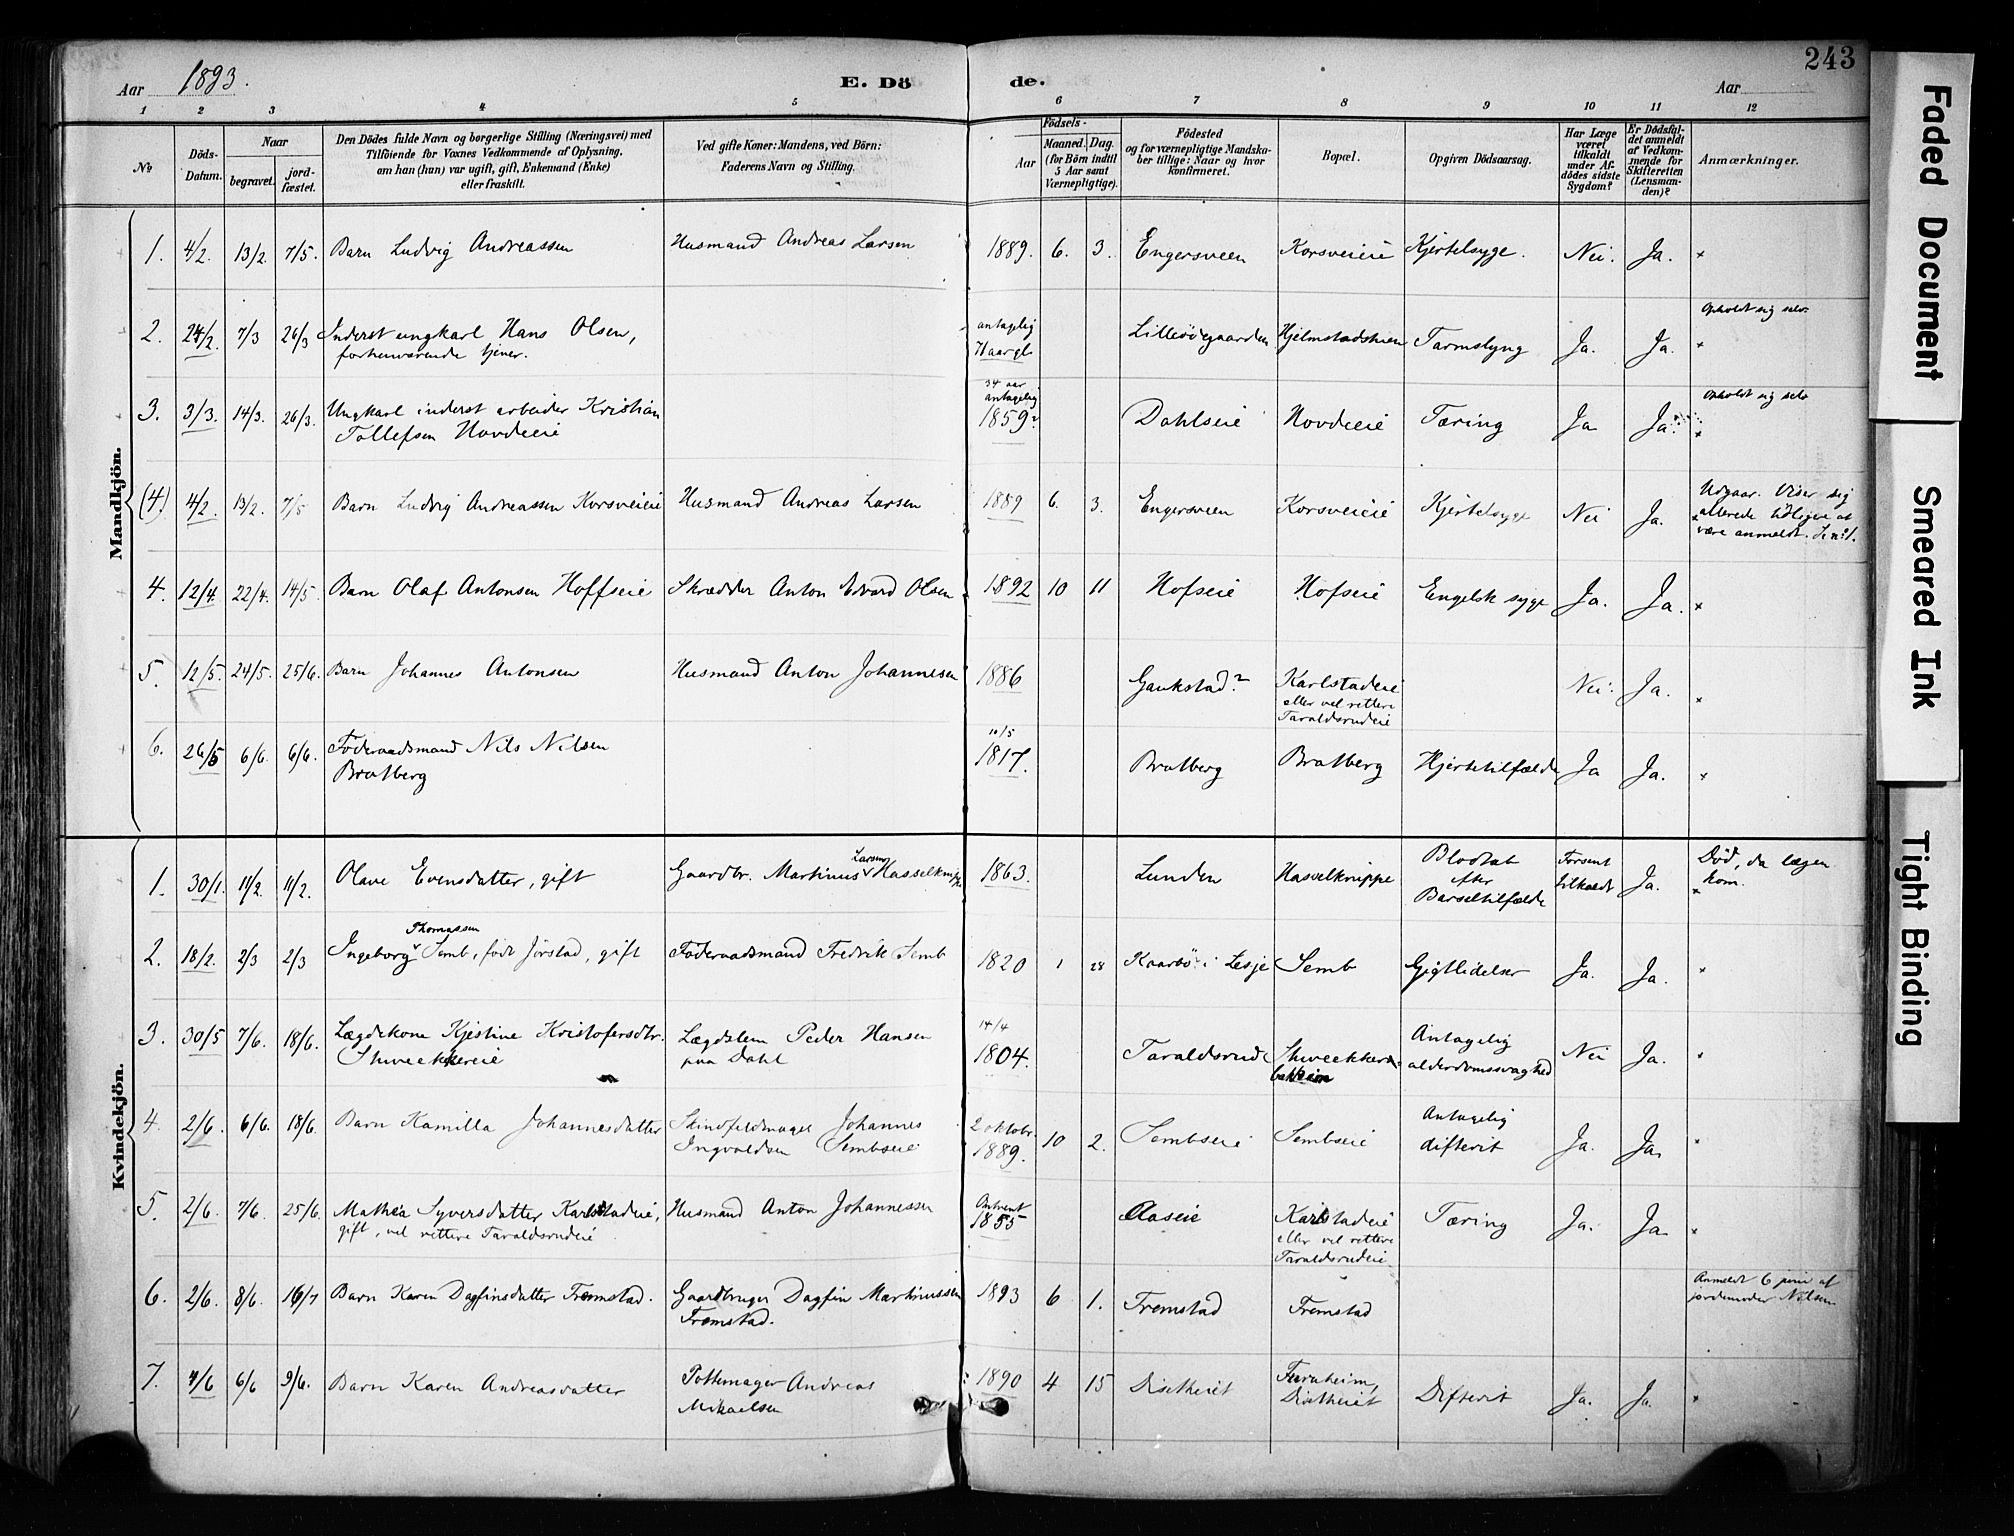 243
Aar 1893.
E. Döde.
Aar
1 2 3 4 5 6 7 8 9 10 11 12
No
Döds-Datum.
Naar
begravet.
jord-fæstet.
Den Dödes fulde Navn og borgerlige Stilling (Næringsvei) med
Tilföiende for Voxnes Vedkommende af Oplysning,
om han (hun) var ugift, gift, Enkemand (Enke)
eller fraskilt.
Ved gifte Koner: Mandens, ved Börn:
Faderens Navn og Stilling.
Födsels-
Aar
Maaned. Dag.
(for Börn indtil
5 Aar samt
Værnepligtige).
Födested
og for værnepligtige Mandska-
ber tillige: Naar og hvor
konfirmeret.
Bopæl.
Opgiven Dödsaarsag.
Har Læge
været
tilkaldt
under Af-
dödes sidste
Sygdom?
Er Dödsfal-
det anmeldt
af Vedkom-
mende for
Skifteretten
(Lensman-
den)?
Anmærkninger.
Mandkjön.
1. 4/2. 13/2. 7/5. Barn Ludvig Andreassen Husmand Andreas Larsen 1889. 6. 3. Engersveen Korsveieie Kjertelsyge. Nei. Ja. ×
2. 24/2. 7/3 26/3 Inderst ungkarl Hans Olsen, antagelig Lilleödegaarden Hjelmstadstuen Ja. Ja. × Opholdt sig selv
forhenværende tjener.
3. 3/3. 14/3. 26/3. Ungkarl inderst arbeider Kristian 34 aar antagelig 1859? Dahlseie Hovdeeie Tæring Ja Ja. × Opholdt sig selv
Tollefsen Hovdeeie
(4) 4/2. 13/2. 7/5 Barn Ludvig Andreassen Korsveieie Husmand Andreas Larsen 1889 6. 3. Engersveen Korsveieie Kjertelsyge Nei Ja. Udgaar. Viser sig
× allerede tidligere at
være anmeldt. Se no 1.
4. 12/4. 22/4. 14/5. Barn Olaf Antonsen Hoffseie Skrædder Anton Edvard Olsen 1892 10 11 Hofseie Hofseie Engelsk syge Ja. Ja. ×
5. 12/5. 24/5. 25/6. Barn Johannes Antonsen Husmand Anton Johannesen 1886 Gaukstad? Karlstadeie Nei. Ja. ×
eller vel rettere
Taraldsrudeie
6. 26/5 6/6. 6/6. Föderaadsmand Nils Nilsen 10/5 1817. Bratberg Bratberg Hjertetilfælde Ja Ja. ×
Bratberg
Kvindekjön.
1. 30/1. 11/2. 11/2. Olave Evensdatter, gift Gaardbr. Martinus Larsen Hasselknippe 1863. Lunden Hasselknippe Blodtab
efter
Barseltilfælde Forsent
tilkaldt Ja. Död, da lægen
× kom.
2. 18/2. 2/3 2/3 Ingeborg Thomassen Semb, födt Jörstad, gift Föderaadsmand Fredrik Semb 1820 1 28 Kaarbö i Lesje Semb Gigtlidelser Ja. Ja. ×
3. 30/5 7/6. 18/6. Lægdekone Kjestine Kristofersdtr. Lægdslem Peder Hansen 14/4 1804. Taraldsrud Antagelig Nei Ja. ×
paa Dahl alderdomssvaghed
4. 2/6. 6/6. 18/6. Barn Kamilla Johannesdatter Skindfeldmager Johannes 2 oktobr. 1889. 10 2. Sembseie Sembseie Antagelig Ja. Ja. ×
Ingvaldsen Sembseie difterit
5. 2/6. 7/6. 25/6. Mathea Syversdatter Karlstadeie, Husmand Anton Johannessen Omtrent 1855 Aaseie Karlstadeie Tæring Ja. Ja ×
gift, vel rettere Taraldsrudeie eller vel rettere
Taraldsrudeie.
6. 2/6. 8/6. 16/7 Barn Karen Dagfinsdatter Fremstad. Gaardbruger Dagfin Martinussen 1893 6 1. Fremstad Fremstad Anmeldt 6 juni af
Fremstad. jordemoder Nilsen
7. 4/6 6/6 9/6. Barn Karen Andreasdatter Pottemager Andreas 1890 4 15 Disetheiet Furuheim, Difterit Ja. Ja ×
Mikaelsen Disetheiet
Faded Document
Smeared Ink
Tight Binding